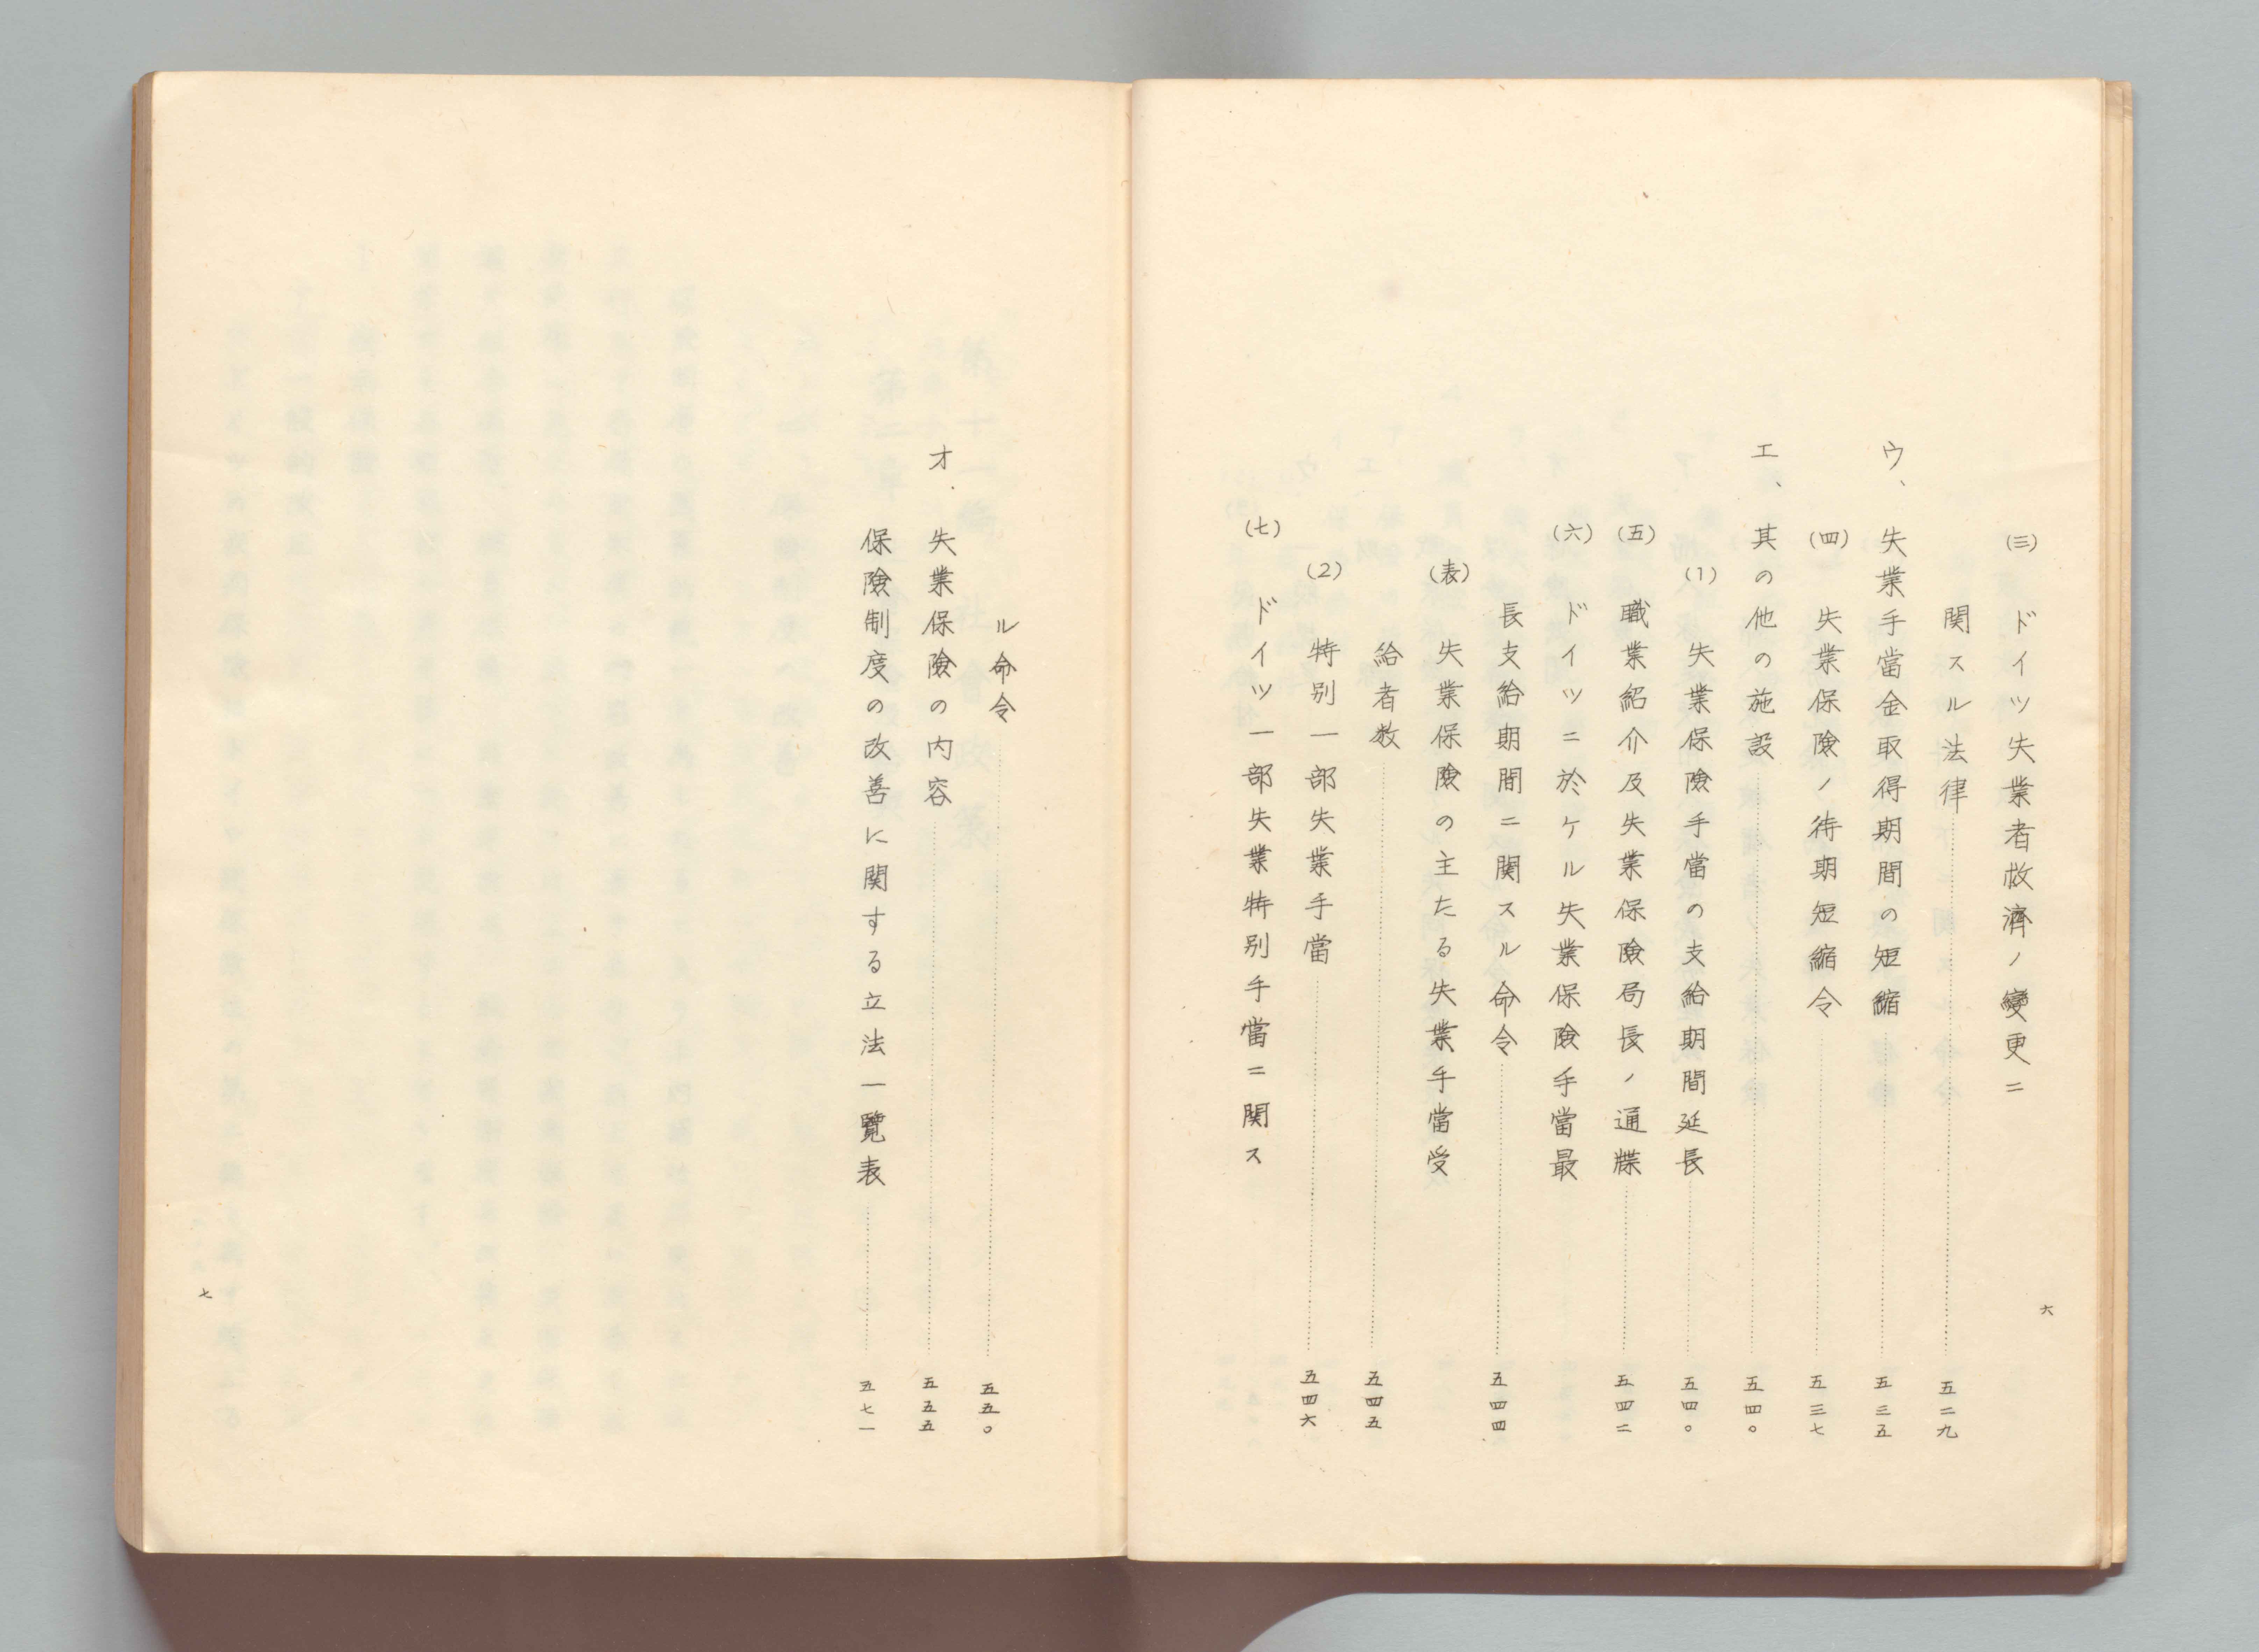 (三) ドイツ失業者救濟ノ變更ニ
関スル法律……五二九
ウ、失業手當金取得期間の短縮……五三五
(四) 失業保険ノ待期短縮令……五三七
エ、其の他の施設……五四〇
(1) 失業保険手當の支給期間延長……五四〇
(五) 職業紹介及失業保険局長ノ通牒……五四二
(六) ドイツニ於ケル失業保険手當最
長支給期間ニ関スル命令……五四四
(表) 失業保険の主たる失業手當受
給者数……五四五
(2) 特別一部失業手當……五四六
(七) ドイツ一部失業特別手當ニ関ス
六
ル命令……五五〇
オ.失業保険の内容……五五五
保険制度の改善に関する立法一覽表……五七一
七